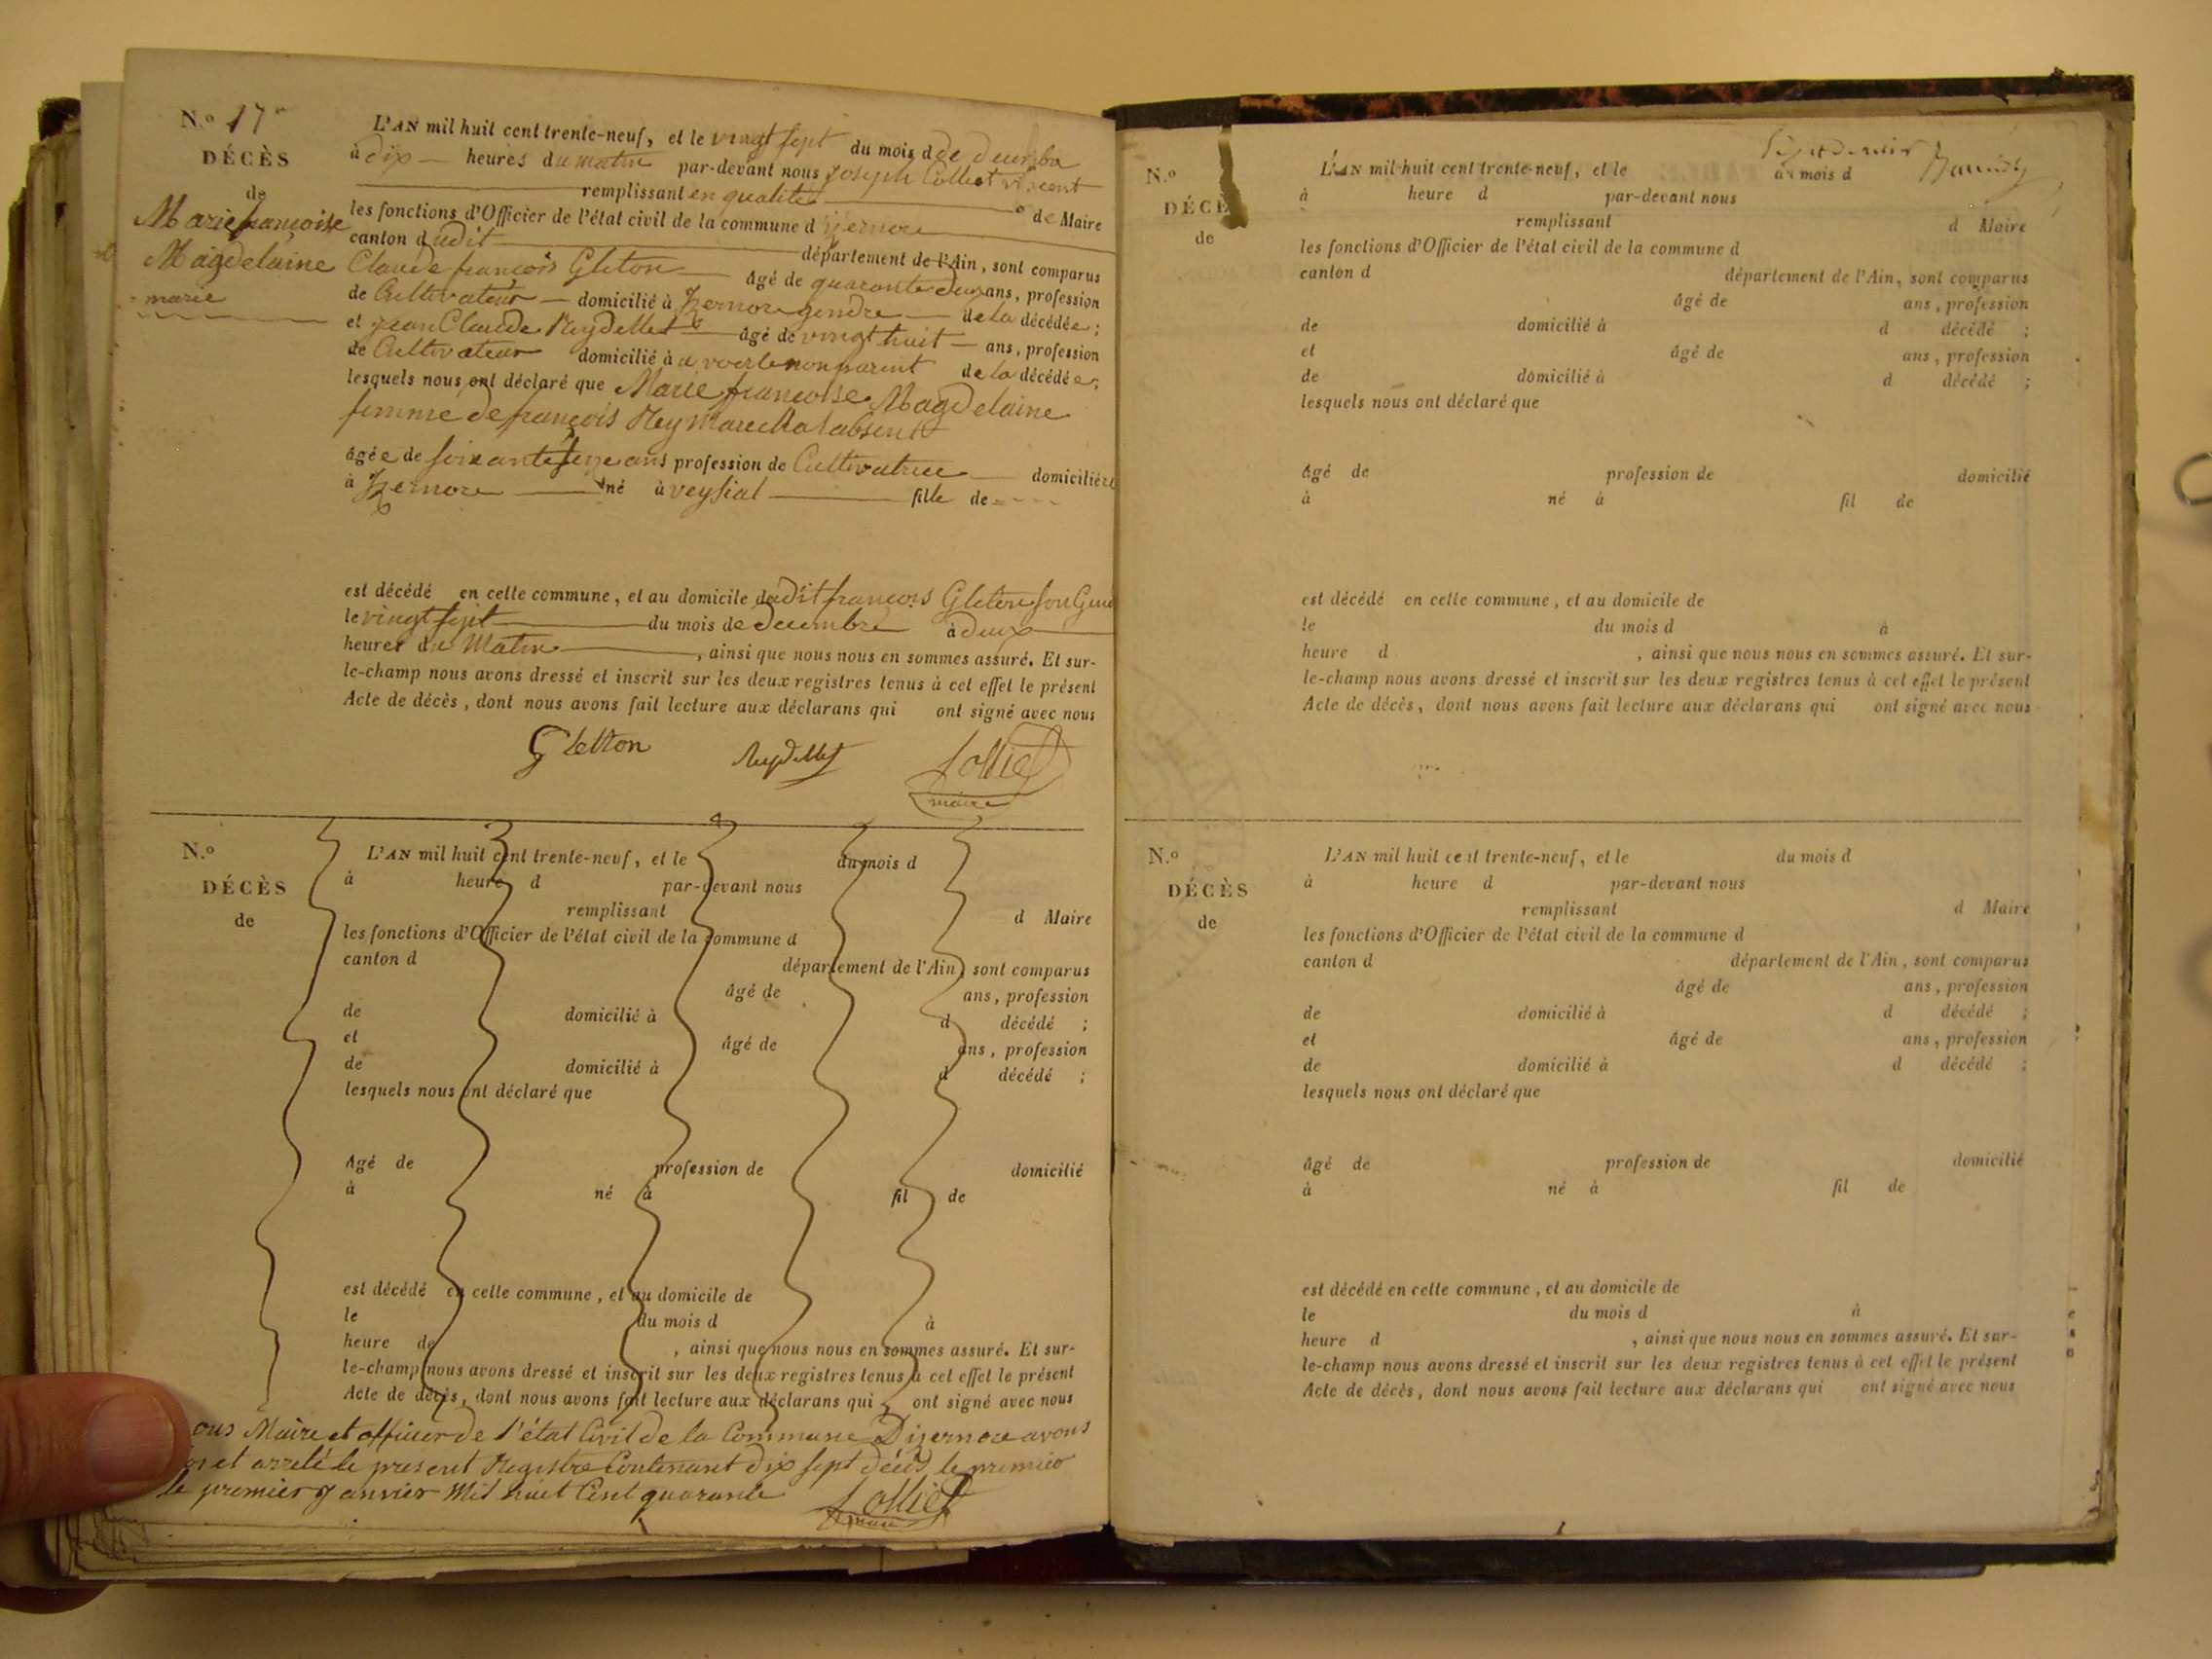 N.o 17
DÉCÈS
de
Marie françoise
Magdelaine
marie
L'AN mil huit cent trente-neuf, et le vingt sept du mois d de decembre
à dix heures du matin par-devant nous joseph Colliet vincent
remplissant en qualité de Maire
les fonctions d'Officier de l'état civil de la commune d'izernore
canton dudit département de l'Ain, sont comparus
Claude françois Gleton âgé de quarante deux ans, profession
de Cultivateur domicilié à Izernore gendre de la décédée ;
et jean Claude Reydellet âgé de vingt huit ans, profession
de Cultivateur domicilié à non parent de la décédée ;
lesquels nous ont déclaré que Marie françoise Magdelaine
femme de françois Rey Marechal absent
âgée de soixante seize ans profession de Cultivatrice domiciliée
à Izernore né à veysiat fille de
est décédé en cette commune, et au domicile dudit françois Gleton son Gend
le vingt sept du mois de decembre à deux
heures du Matin , ainsi que nous nous en sommes assuré. Et sur-
le-champ nous avons dressé et inscrit sur les deux registres tenus à cet effet le présent
Acte de décès, dont nous avons fait lecture aux déclarans qui ont signé avec nous
Gletton Reydellet Colliet
maire
N.o
DÉCÈS
de
L'AN mil huit cent trente-neuf, et le du mois d
à heure d par-devant nous
remplissant d Maire
les fonctions d'Officier de l'état civil de la commune d
canton d département de l'Ain, sont comparus
âgé de ans, profession
de domicilié à d décédé ;
et âgé de ans, profession
de domicilié à d décédé ;
lesquels nous ont déclaré que
âgé de profession de domicilié
à né à fil de
est décédé en cette commune, et au domicile de
le du mois d à
heure de , ainsi que nous nous en sommes assuré. Et sur-
le-champ nous avons dressé et inscrit sur les deux registres tenus à cet effet le présent
Acte de décès, dont nous avons fait lecture aux déclarans qui ont signé avec nous
ous Maire et officier de l'état Civil de la Commune Dizernore avons
et arrêté le present Registre Contenant dix sept décès le premier
le premier janvier Mil huit Cent quarante Colliet
maire
N.o
DÉCÈ
de
L'AN mil huit cent trente-neuf, et le du mois d
à heure d par-devant nous
remplissant d Maire
les fonctions d'Officier de l'état civil de la commune d
canton d département de l'Ain, sont comparus
âgé de ans, profession
de domicilié à d décédé ;
et âgé de ans, profession
de domicilié à d décédé ;
lesquels nous ont déclaré que
âgé de profession de domicilié
à né à fil de
est décédé en cette commune, et au domicile de
le du mois d à
heure d , ainsi que nous nous en sommes assuré. Et sur-
le-champ nous avons dressé et inscrit sur les deux registres tenus à cet effet le présent
Acte de décès, dont nous avons fait lecture aux déclarans qui ont signé avec nous
N.o
DÉCÈS
de
L'AN mil huit cent trente-neuf, et le du mois d
à heure d par-devant nous
remplissant d Maire
les fonctions d'Officier de l'état civil de la commune d
canton d département de l'Ain, sont comparus
âgé de ans, profession
de domicilié à d décédé ;
et âgé de ans, profession
de domicilié à d décédé ;
lesquels nous ont déclaré que
âgé de profession de domicilié
à né à fil de
est décédé en cette commune, et au domicile de
le du mois d à
heure d , ainsi que nous nous en sommes assuré. Et sur-
le-champ nous avons dressé et inscrit sur les deux registres tenus à cet effet le présent
Acte de décès, dont nous avons fait lecture aux déclarans qui ont signé avec nous